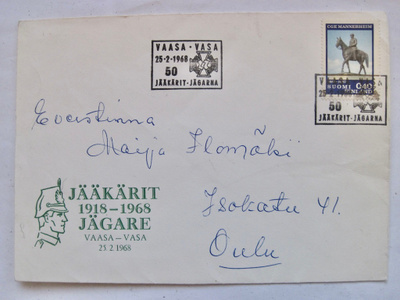 VAASA - VASA
25·2·1968
50
JÄÄKÄRIT-JÄGARNA
CGE MANNERHEIM
SUOMI 0,40
50
JÄÄKÄRIT-JÄGARNA
Everstinna
Maija Ilomäki
Isokatu 41.
Oulu
JÄÄKÄRIT
1918-1968
JÄGARE
VAASA - VASA
25.2.1968